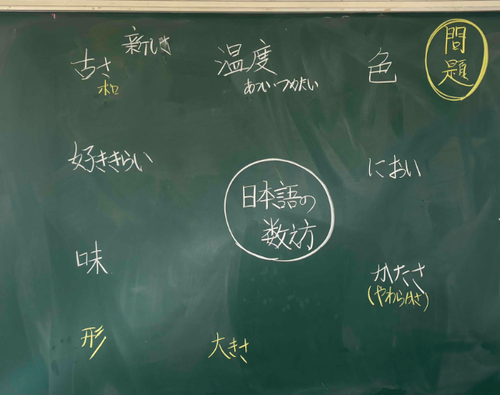 新しさ
古さ
和
温度
あつい つめたい
色
問題
好ききらい
におい
日本語の
数え方
味
かたさ
(やわらかさ)
形
大きさ